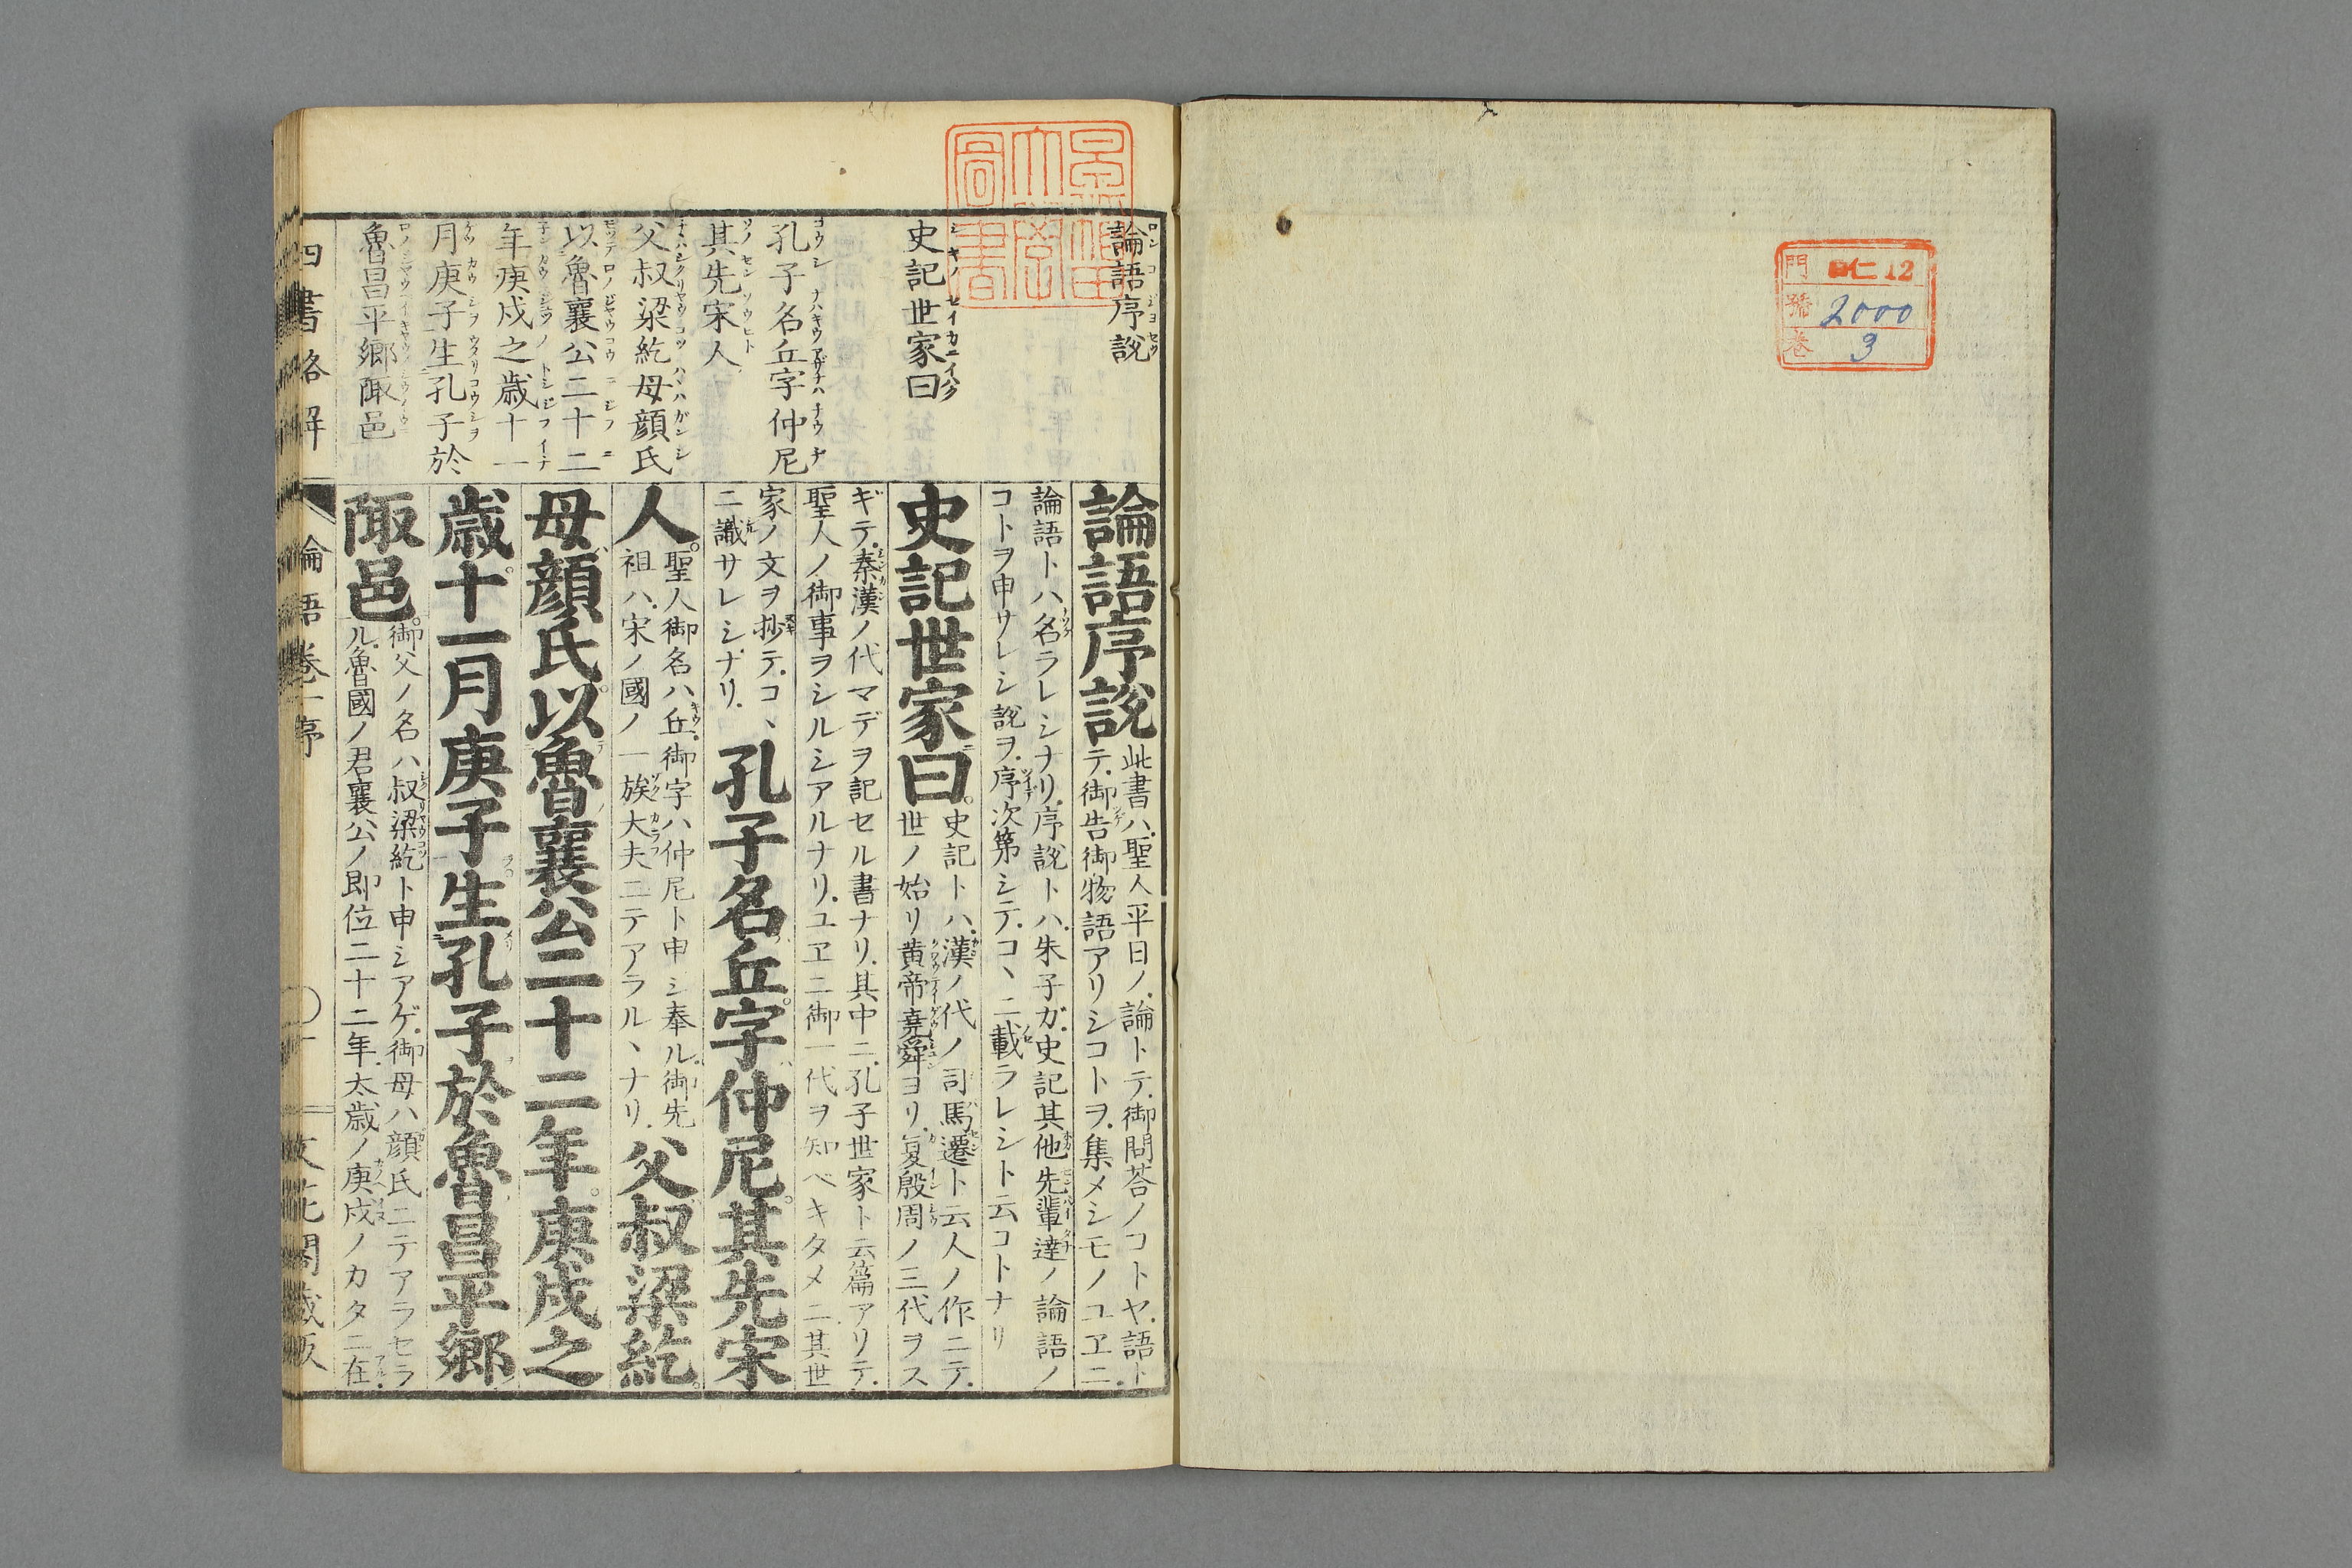 門 仁12
號 2000
巻 3
論語序説
史記世家曰
孔子名丘字仲尼
其先宋人
父叔梁紇母顔氏
以魯襄公二十二
年庚戌之歳十一
月庚子生孔子於
魯昌平郷陬邑
論語序説
此書ハ聖人平日ノ論トテ御問荅ノコトヤ語ト
テ御告御物語アリシコトヲ集メシモノユヱニ
論語トハ名ラレシナリ序説トハ朱子ガ史記其他先輩達ノ論語ノ
コトヲ申サレシ説ヲ序次第シテコヽニ載ラレシト云コトナリ
史記世家曰
史記トハ漢ノ代ノ司馬遷ト云人ノ作ニテ
世ノ始リ黄帝堯舜ヨリ夏殷周ノ三代ヲス
ギテ秦漢ノ代マデヲ記セル書ナリ其中ニ孔子世家ト云篇アリテ
聖人ノ御事ヲシルシアルナリユヱニ御一代ヲ知ベキタメニ其世
家ノ文ヲ抄テコヽ
ニ識サレシナリ
孔子名丘字仲尼其先宋
人
聖人御名ハ丘御字ハ仲尼ト申シ奉ル御先
祖ハ宋ノ國ノ一族大夫ニテアラルヽナリ
父叔梁紇
母顔氏以魯襄公二十二年庚戌之
歳十一月庚子生孔子於魯昌平郷
陬邑
御父ノ名ハ叔梁紇ト申シアゲ御母ハ顔氏ニテアラセラ
ル魯國ノ君襄公ノ即位二十二年太歳ノ庚戌ノカタニ在
四書略解 論語巻一序